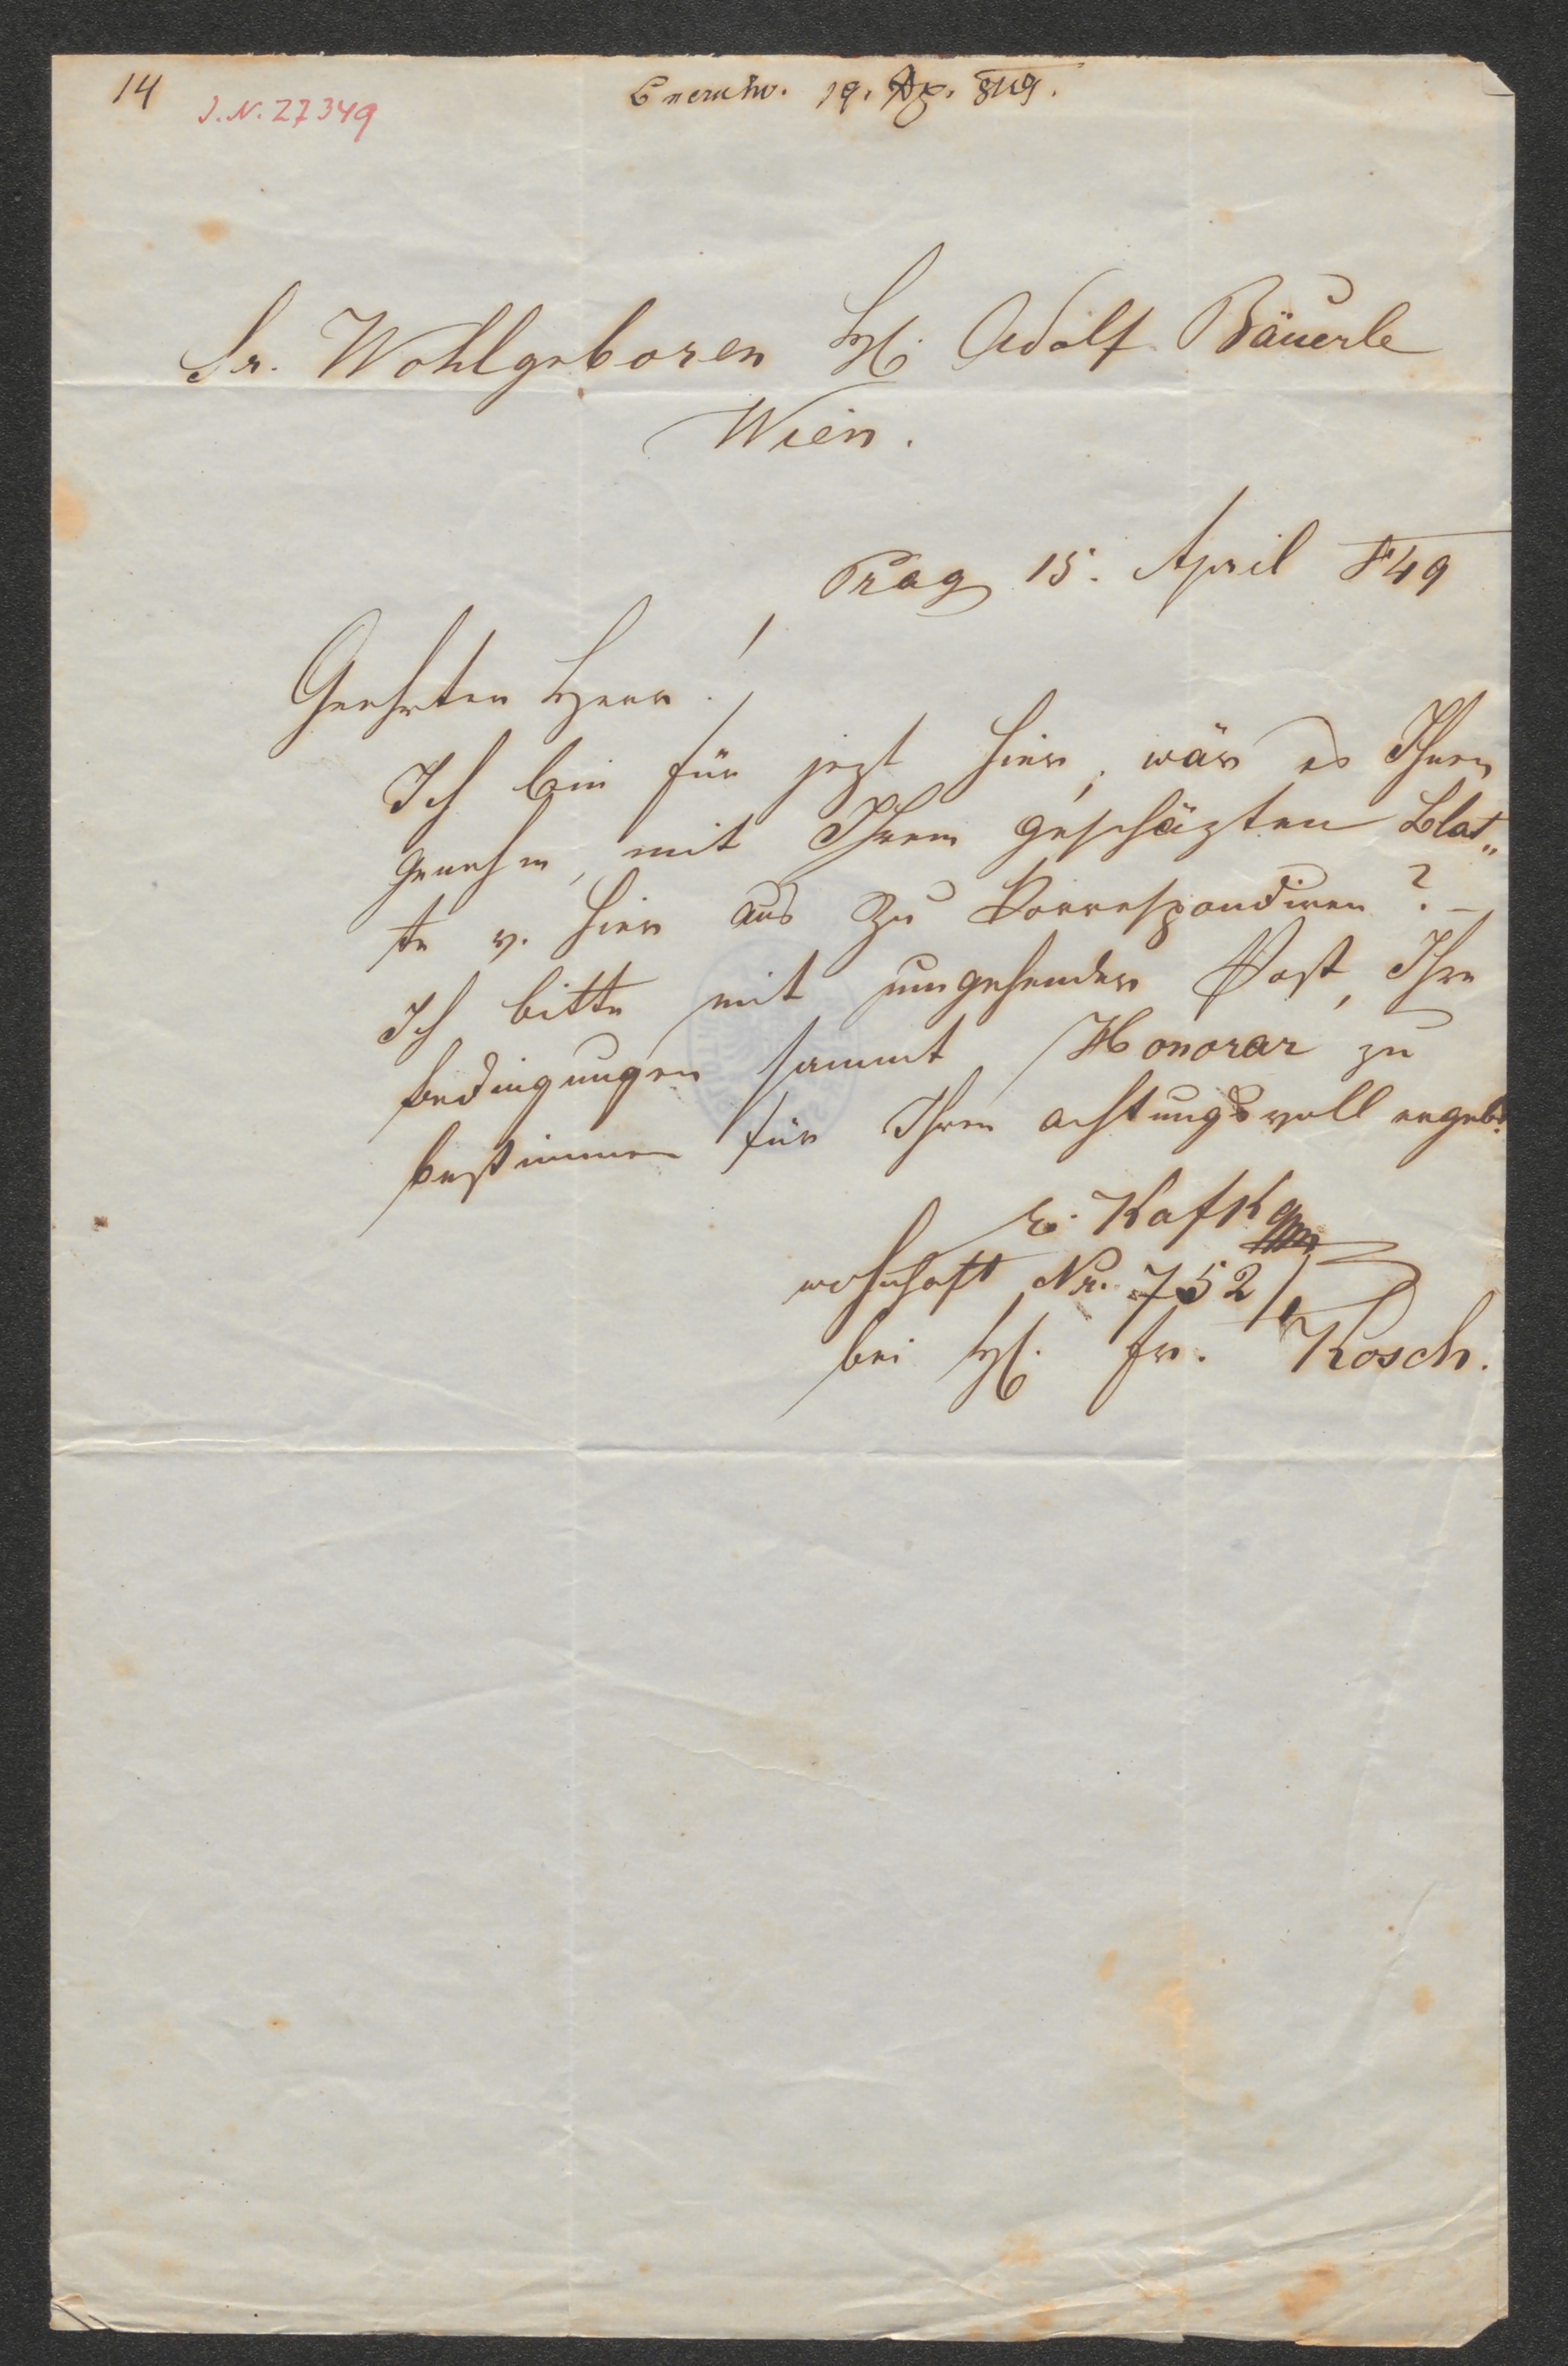 14
I.N. 27349
19. Ap. 849.
Sr. Wohlgeboren H. Adolf Bäuerle
Wien.
Prag 15. April 849
Geehrter Herr!
Ich bin für jezt hier, wär es Ihnen
genehm, mit Ihrem geschäzten Blat„
te v. hier aus zu Korrespondiren? –
Ich bitte mit umgehender Post, Ihre
bedingungen sammt Honorar zu
bestimmen für Ihren achtungsvoll ergebn.
Kafka
wohnhaft Nr. 752/1
bei H. Fr. Kosch.